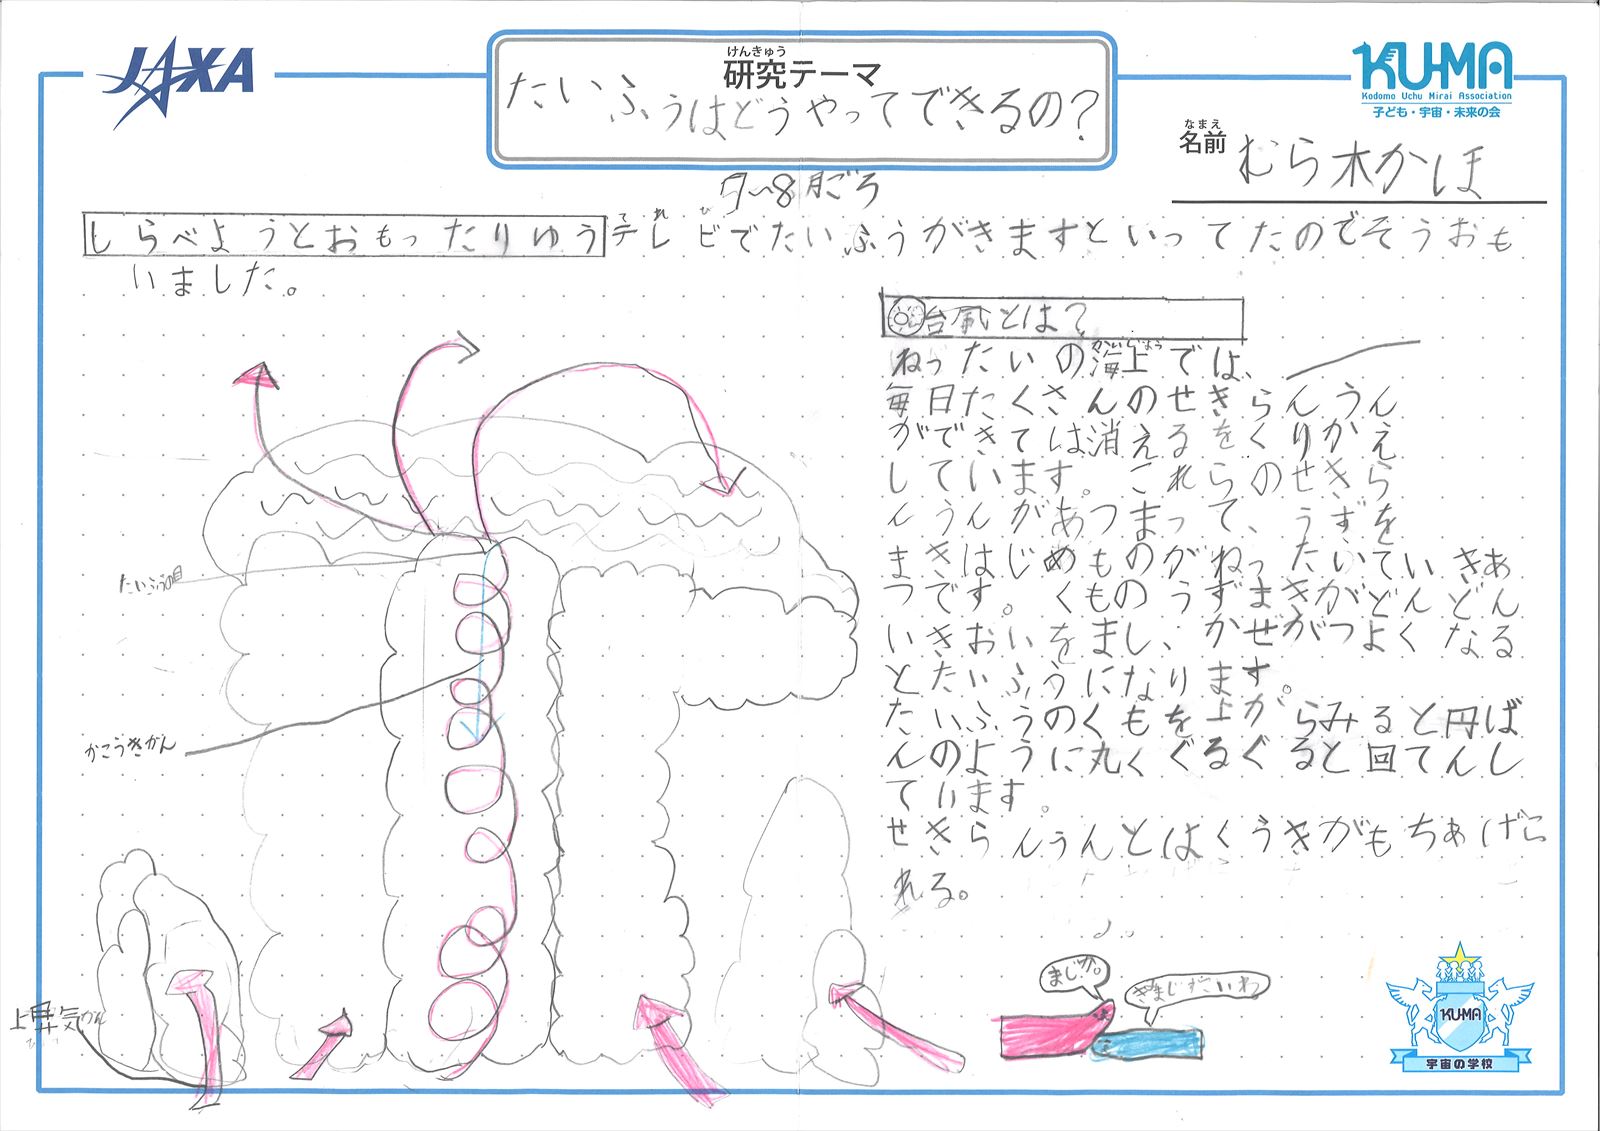 JAXA
けんきゅう
研究テーマ
たいふうはどうやってできるの?
KU-MA
Kodomo Uchu Mirai Association
子ども・宇宙・未来の会
なまえ
名前
むら木かほ
7~8月ごろ
てれび
しらべようとおもったりゆうテレビでたいふうがきますといってたのでそうおも
いました。
台風とは?
かいじょう
ねったいの海上では、
毎日たくさんのせきらんうん
ができては消えるをくりかえ
しています。これらのせきら
んうんがあつまって、うずを
まきはじめものがねったいていきあ
つです。くものうずまきがどんどん
いきおいをまし、かぜがつよくなる
とたいふうになります。
たいふうのくもを上がらみると円ば
んのように丸くぐるぐると回てんし
ています。
せきらんうんとはくうきがもちあげら
れる。
たいふうの目
かこうきかん
上昇気かん
まじか。
きまじすごいわ
KUMA
宇宙の学校